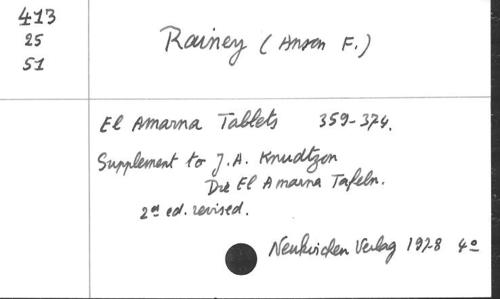 413
25
51
Rainey (Anson F.)
El Amarna Tablets 359-374.
Supplement to J.A. Knudtzon
Die El Amarna Tafeln.
2d ed. revised.
Neukirchen Verlag 1978 4°